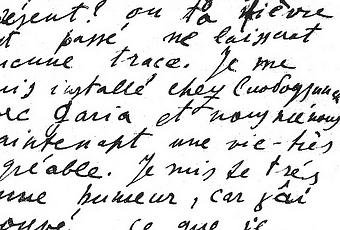 présent? ou ta fièvre
passé ne laissant
aucune trace. Je me
suis installé chez Слободзинск
avec Daria et nous menons
maintenant une vie très
agréable. Je suis de très
bonne humeur, car j'ai
trouvé ce que je